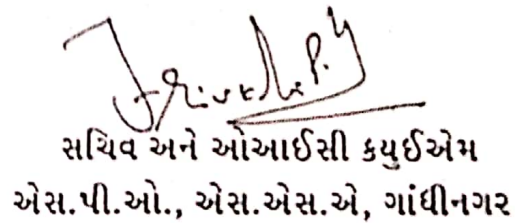 સચિવ અને ઓઆઈસી કયુઈએમ
એસ.પી.ઓ., એસ.એસ.એ, ગાંધીનગર